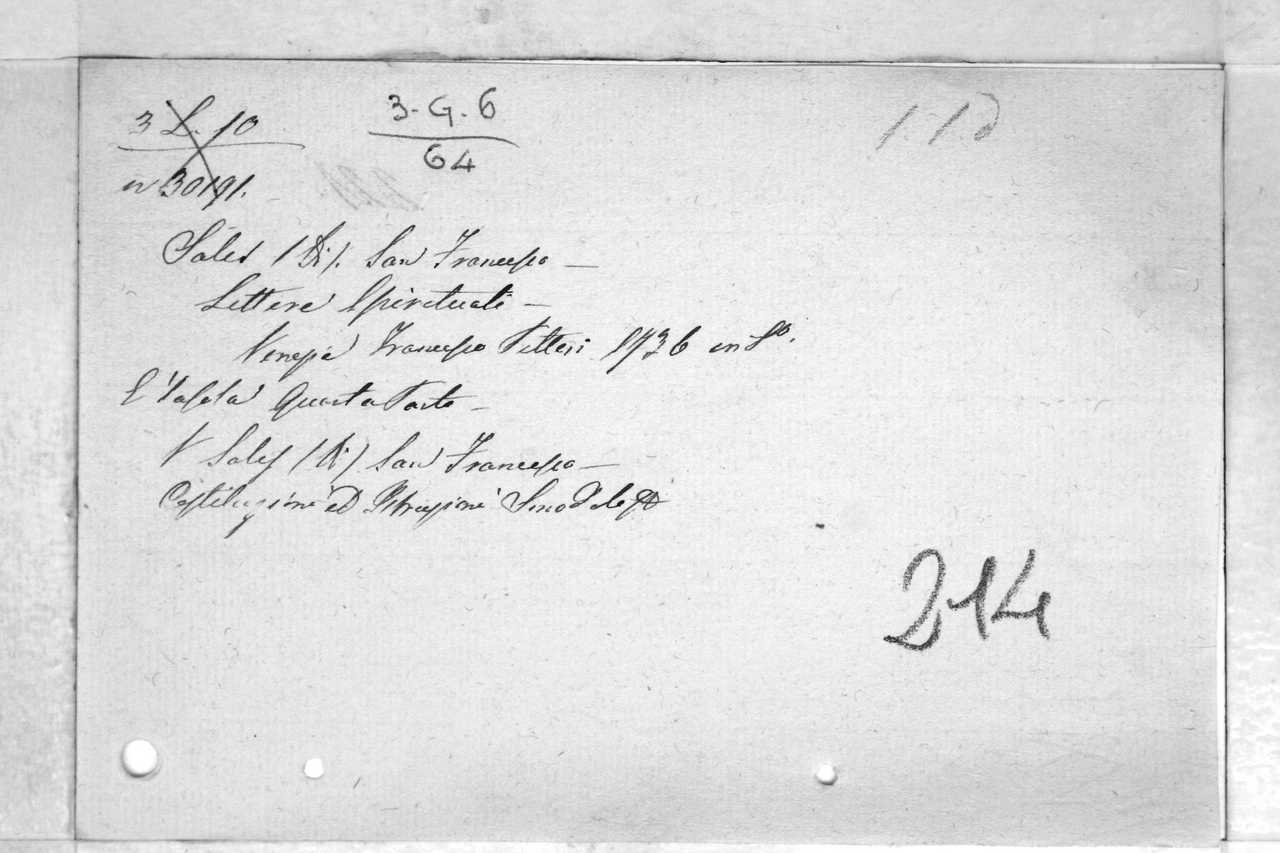 3 L. 10
3. G. 6
64
n 30191.
Sales (Di). San Francesco —
Lettere Spirituali —
Venezia Francesco Pitteri 1736 in 8º.
È Tassata Quarta Parte —
V Sales (Di) San Francesco —
Costituzioni ed Istruzioni Sinodale
214